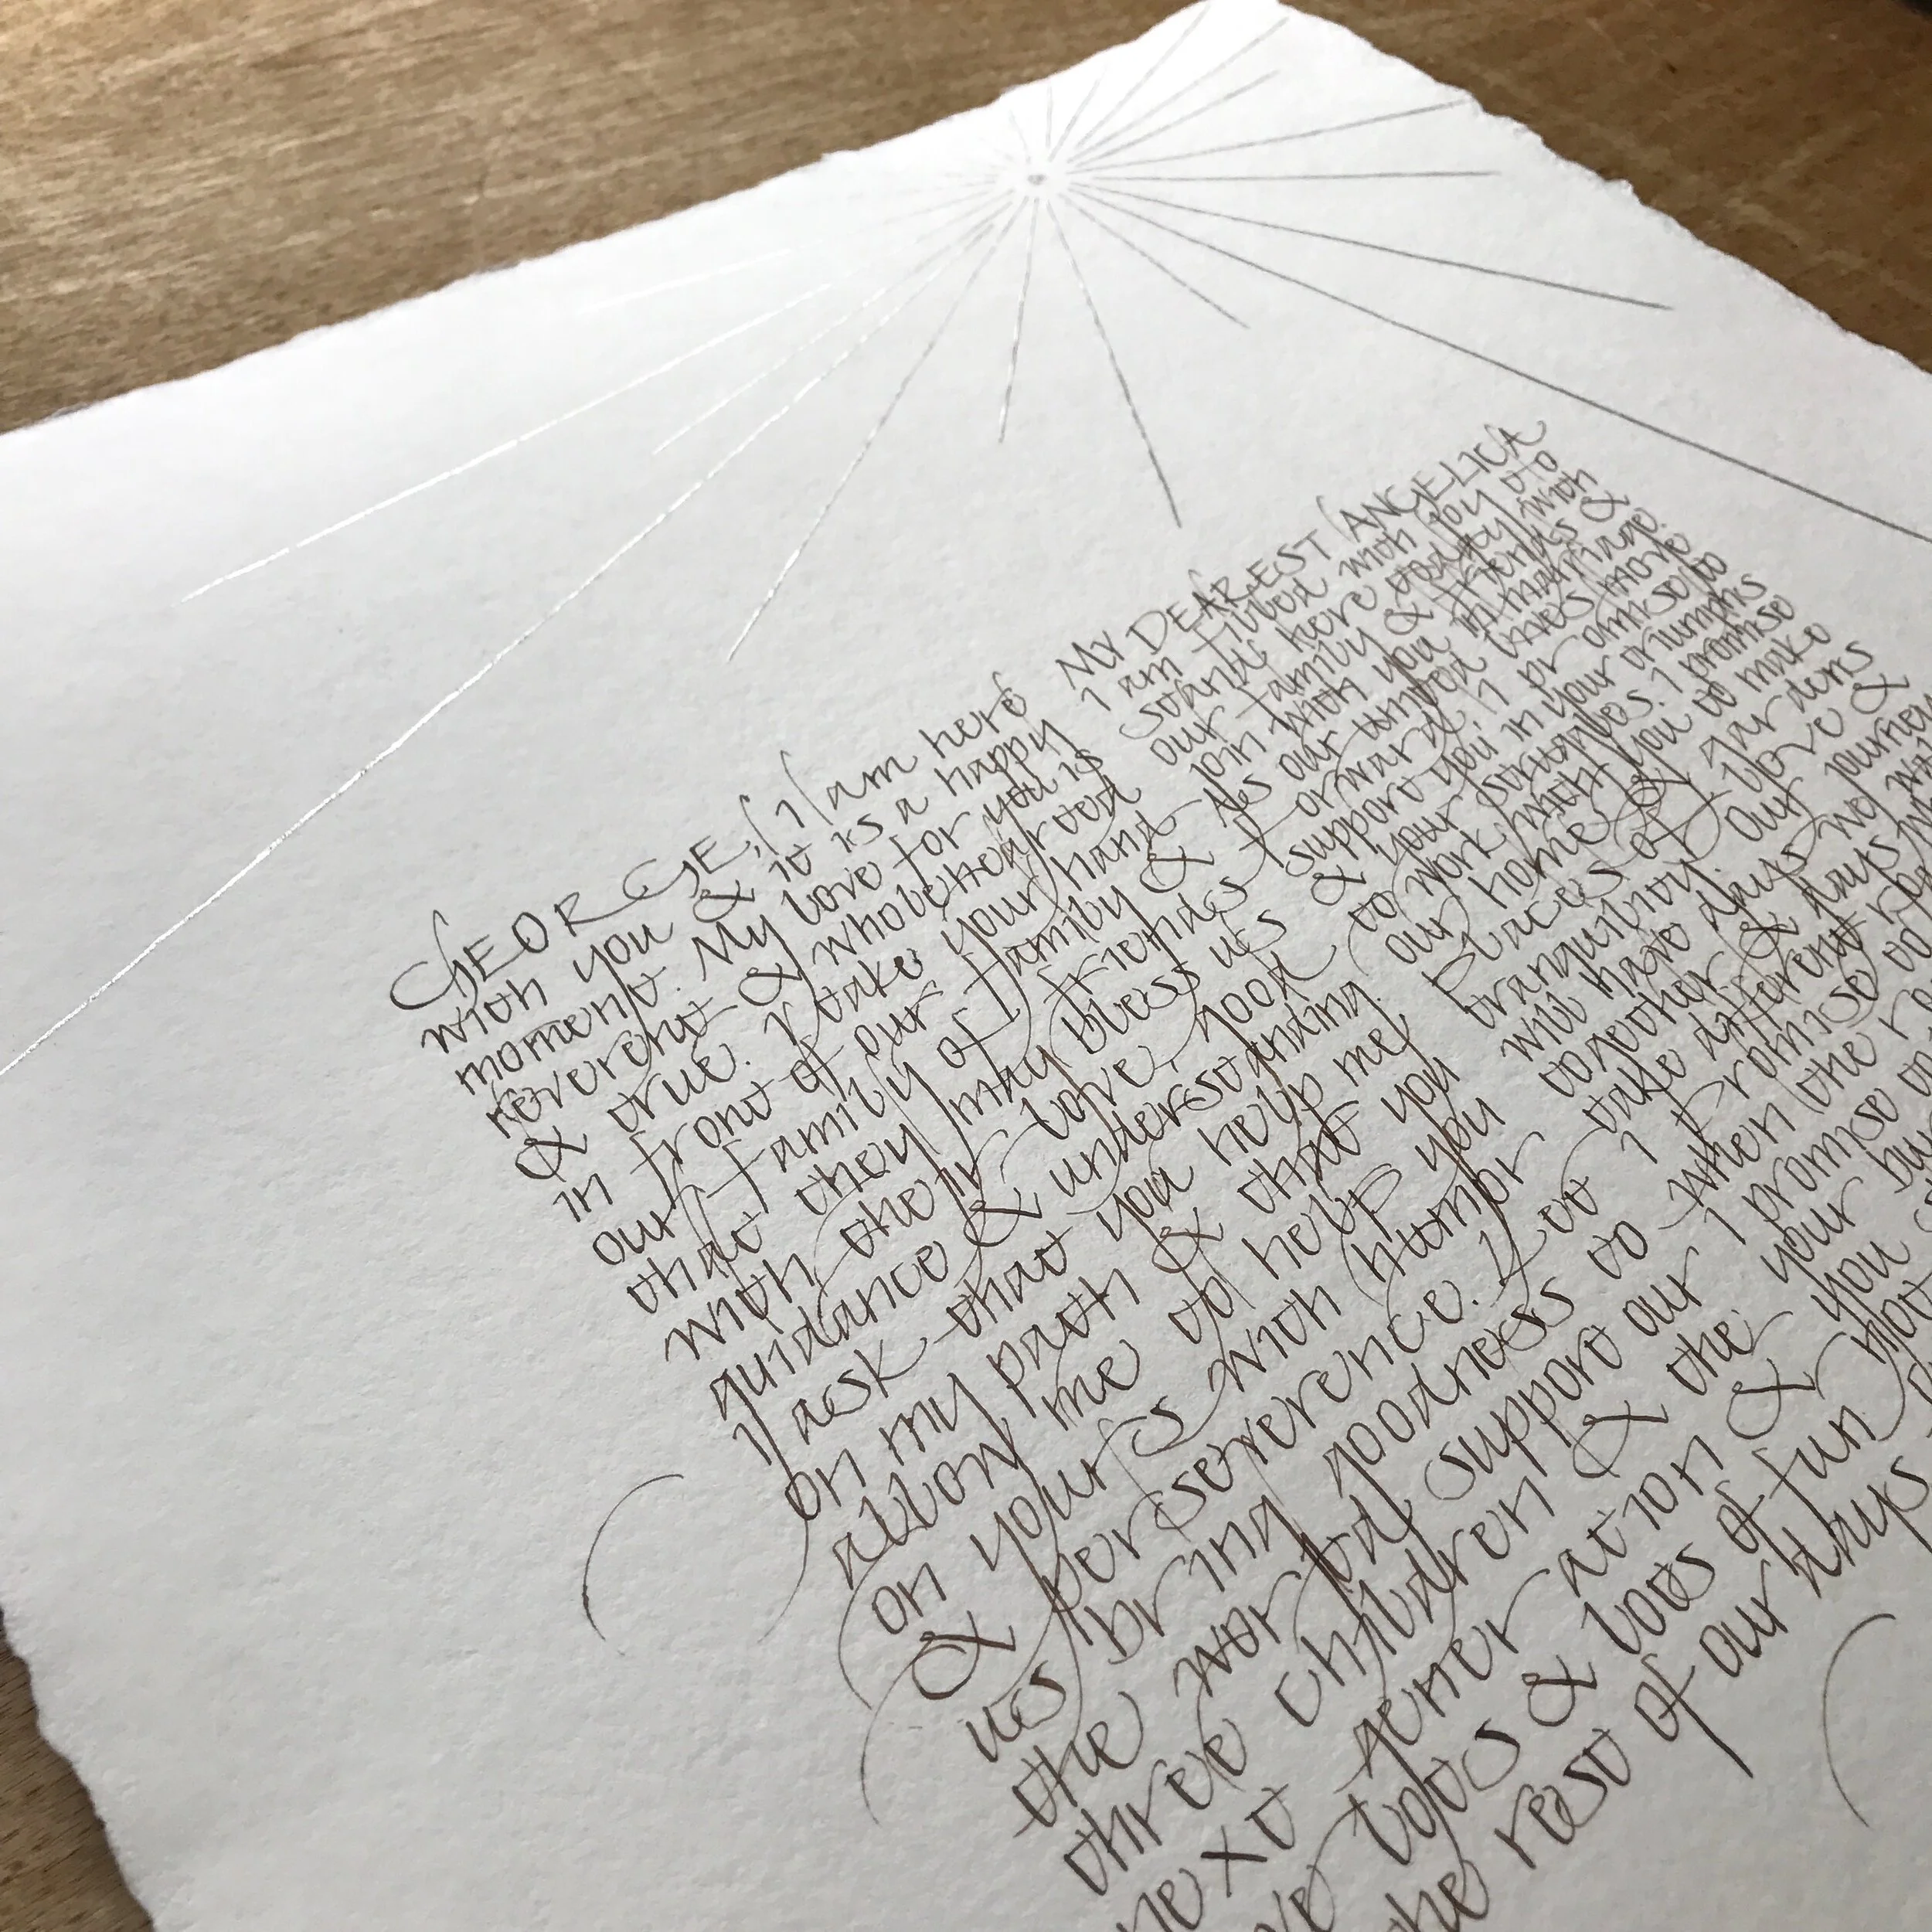 GEORGE, I am here
with you & it is a happy
moment. My love for you is
reverent & wholehearted
& true. I take your hand
in front of our family &
our family of friends
that they may bless us
with their love, good
guidance & understanding.
I ask that you help me
on my path & that you
allow me to help you
on yours with humor
& perserverence. Let
us bring goodness to
the world, support our
three children & the
next generation &
lots & lots of fun
the rest of our days
MY DEAREST ANGELICA
I am filled with joy to
stand here today with
our family & friends &
join with you in marriage.
As our united lives move
forward, I promise to
support you in your triumphs
& your struggles. I promise
to work with you to make
our home & gardens
places of love &
tranquility. Our journey
will have days we
together & days
take different
I promise to
when the
I promise
your
you